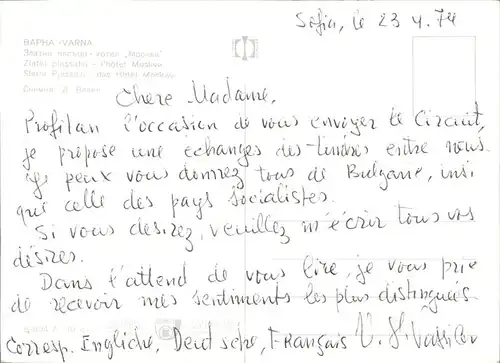 Sofia, le 23 4. 74
ВАРНА · VARNA
Златни пясъци - хотел „Москва"
Zlatni piassatsi - l'hôtel Moskva
Slatni Pjassazi - das Hotel Moskva
Chere Madame,
Profitan l'occasion de vous envoyer le Circuit,
je propose une echanges des timbres entre nous.
Je peux vous donnez tous de Bulgarie, insi
que celle des pays socialistes.
Si vous desirez, veuillez m'écrir tous vos
désires.
Dans l'attend de vous lire, je vous prie
de recevoir mes sentiments les plus distinguées.
Corresp. Engliche, Deutsche, Français